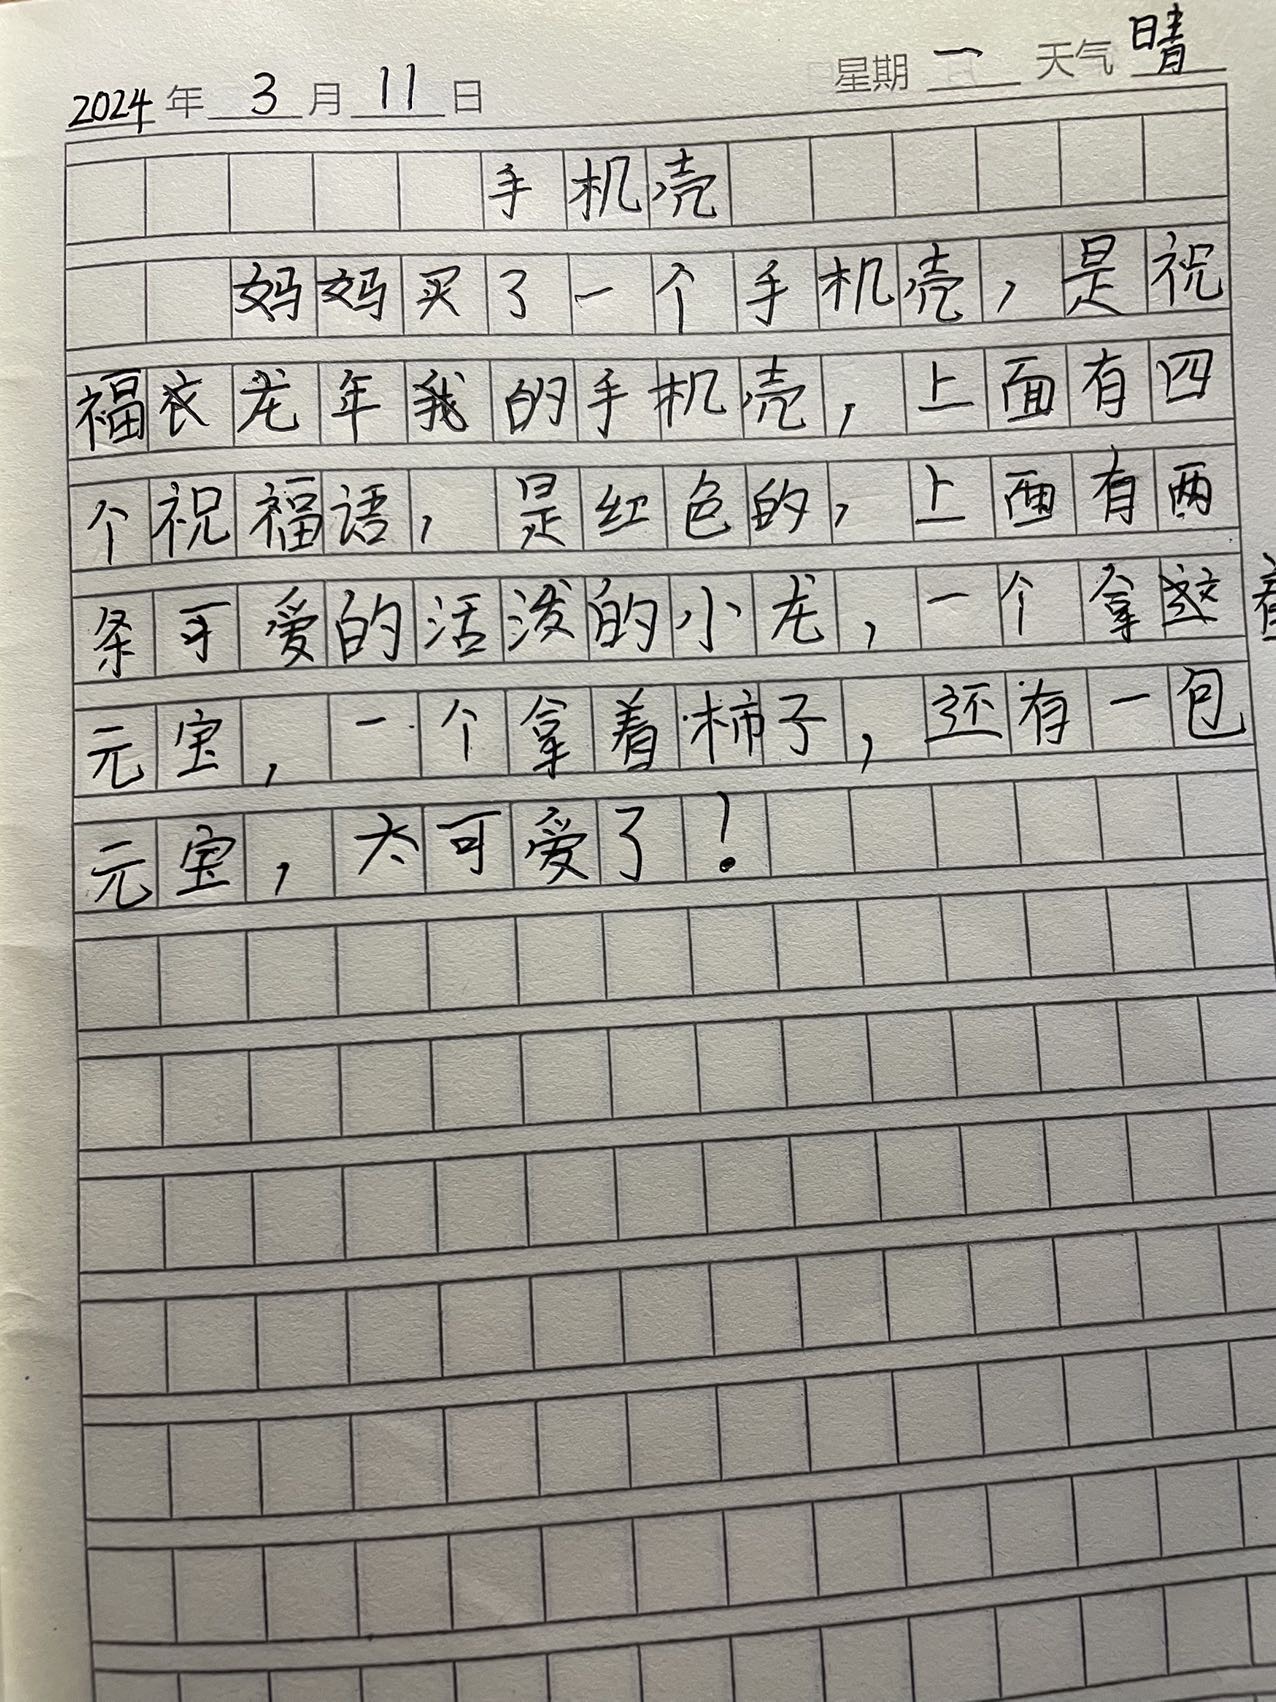 2024 年 3 月 11 日 星期 一 天气 晴
手机壳
妈妈买了一个手机壳,是祝
福龙年我的手机壳,上面有四
个祝福语,是红色的,上面有两
条可爱的活泼的小龙,一个拿着
元宝,一个拿着柿子,还有一包
元宝,太可爱了!